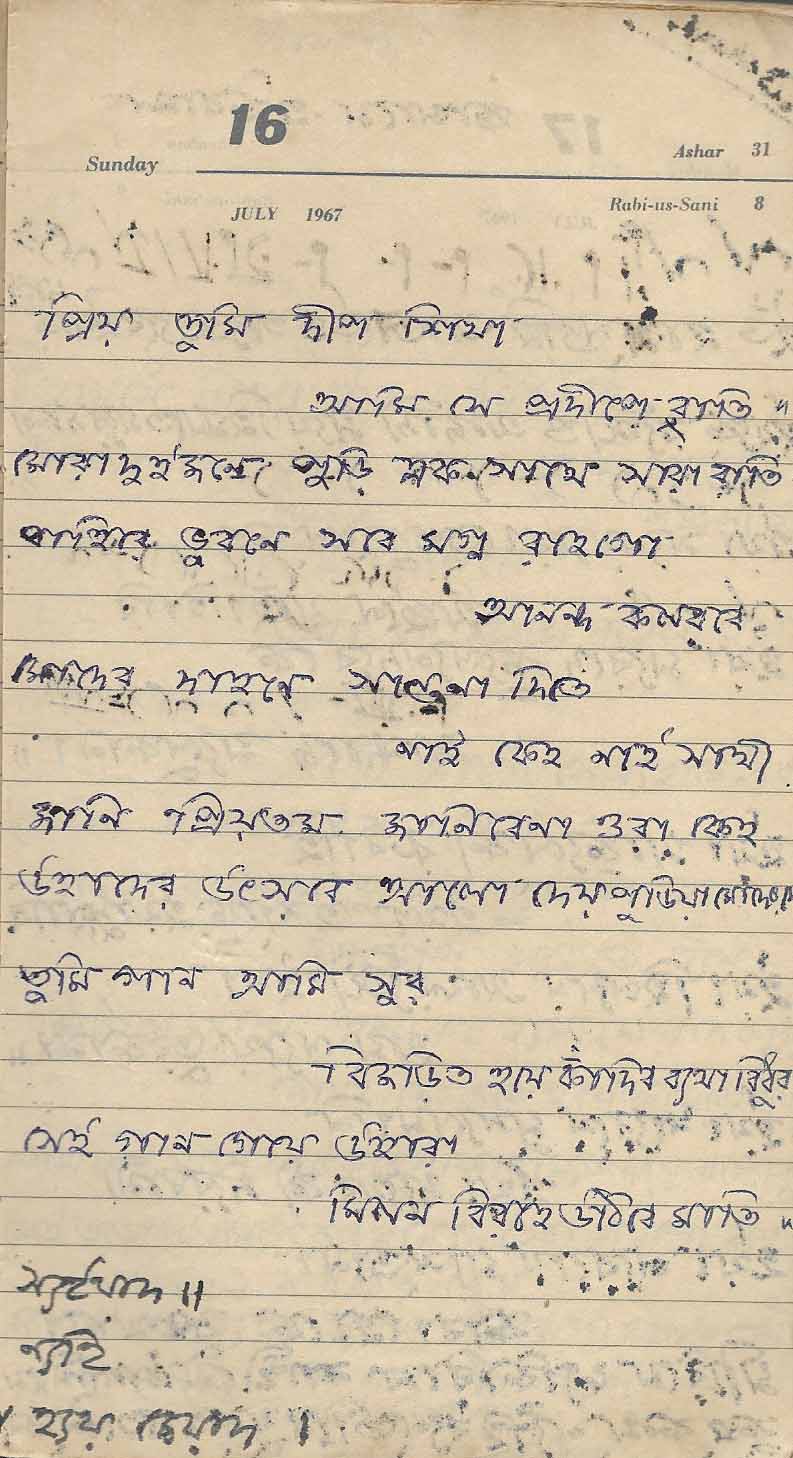 16
Sunday
Ashar 31
JULY 1967
Rabi-us-Sani 8
প্রিয় তুমি দীপ শিখা
আমি সে প্রদীপে বাতি "
মোরা দুই জনে পুড়ি এক সাথে সারা রাতি
বাহিরে ভুবনে সবে মগ্ন রহে গো
আনন্দ কলরবে
মোদের দাহনে সান্ত্বনা দিতে
নাই কেহ নাই সাথী
জানি প্রিয়তম জানিবেনা ওরা কেহ
উহাদের উৎসবে আলো দেয় পুড়িয়া মোদের
তুমি গান আমি সুর
বিজড়িত হয়ে কাঁদিব ব্যথা বিধুর
সেই গান গেয়ে উহারা
মিলন বিরহে উঠিবে মাতি "